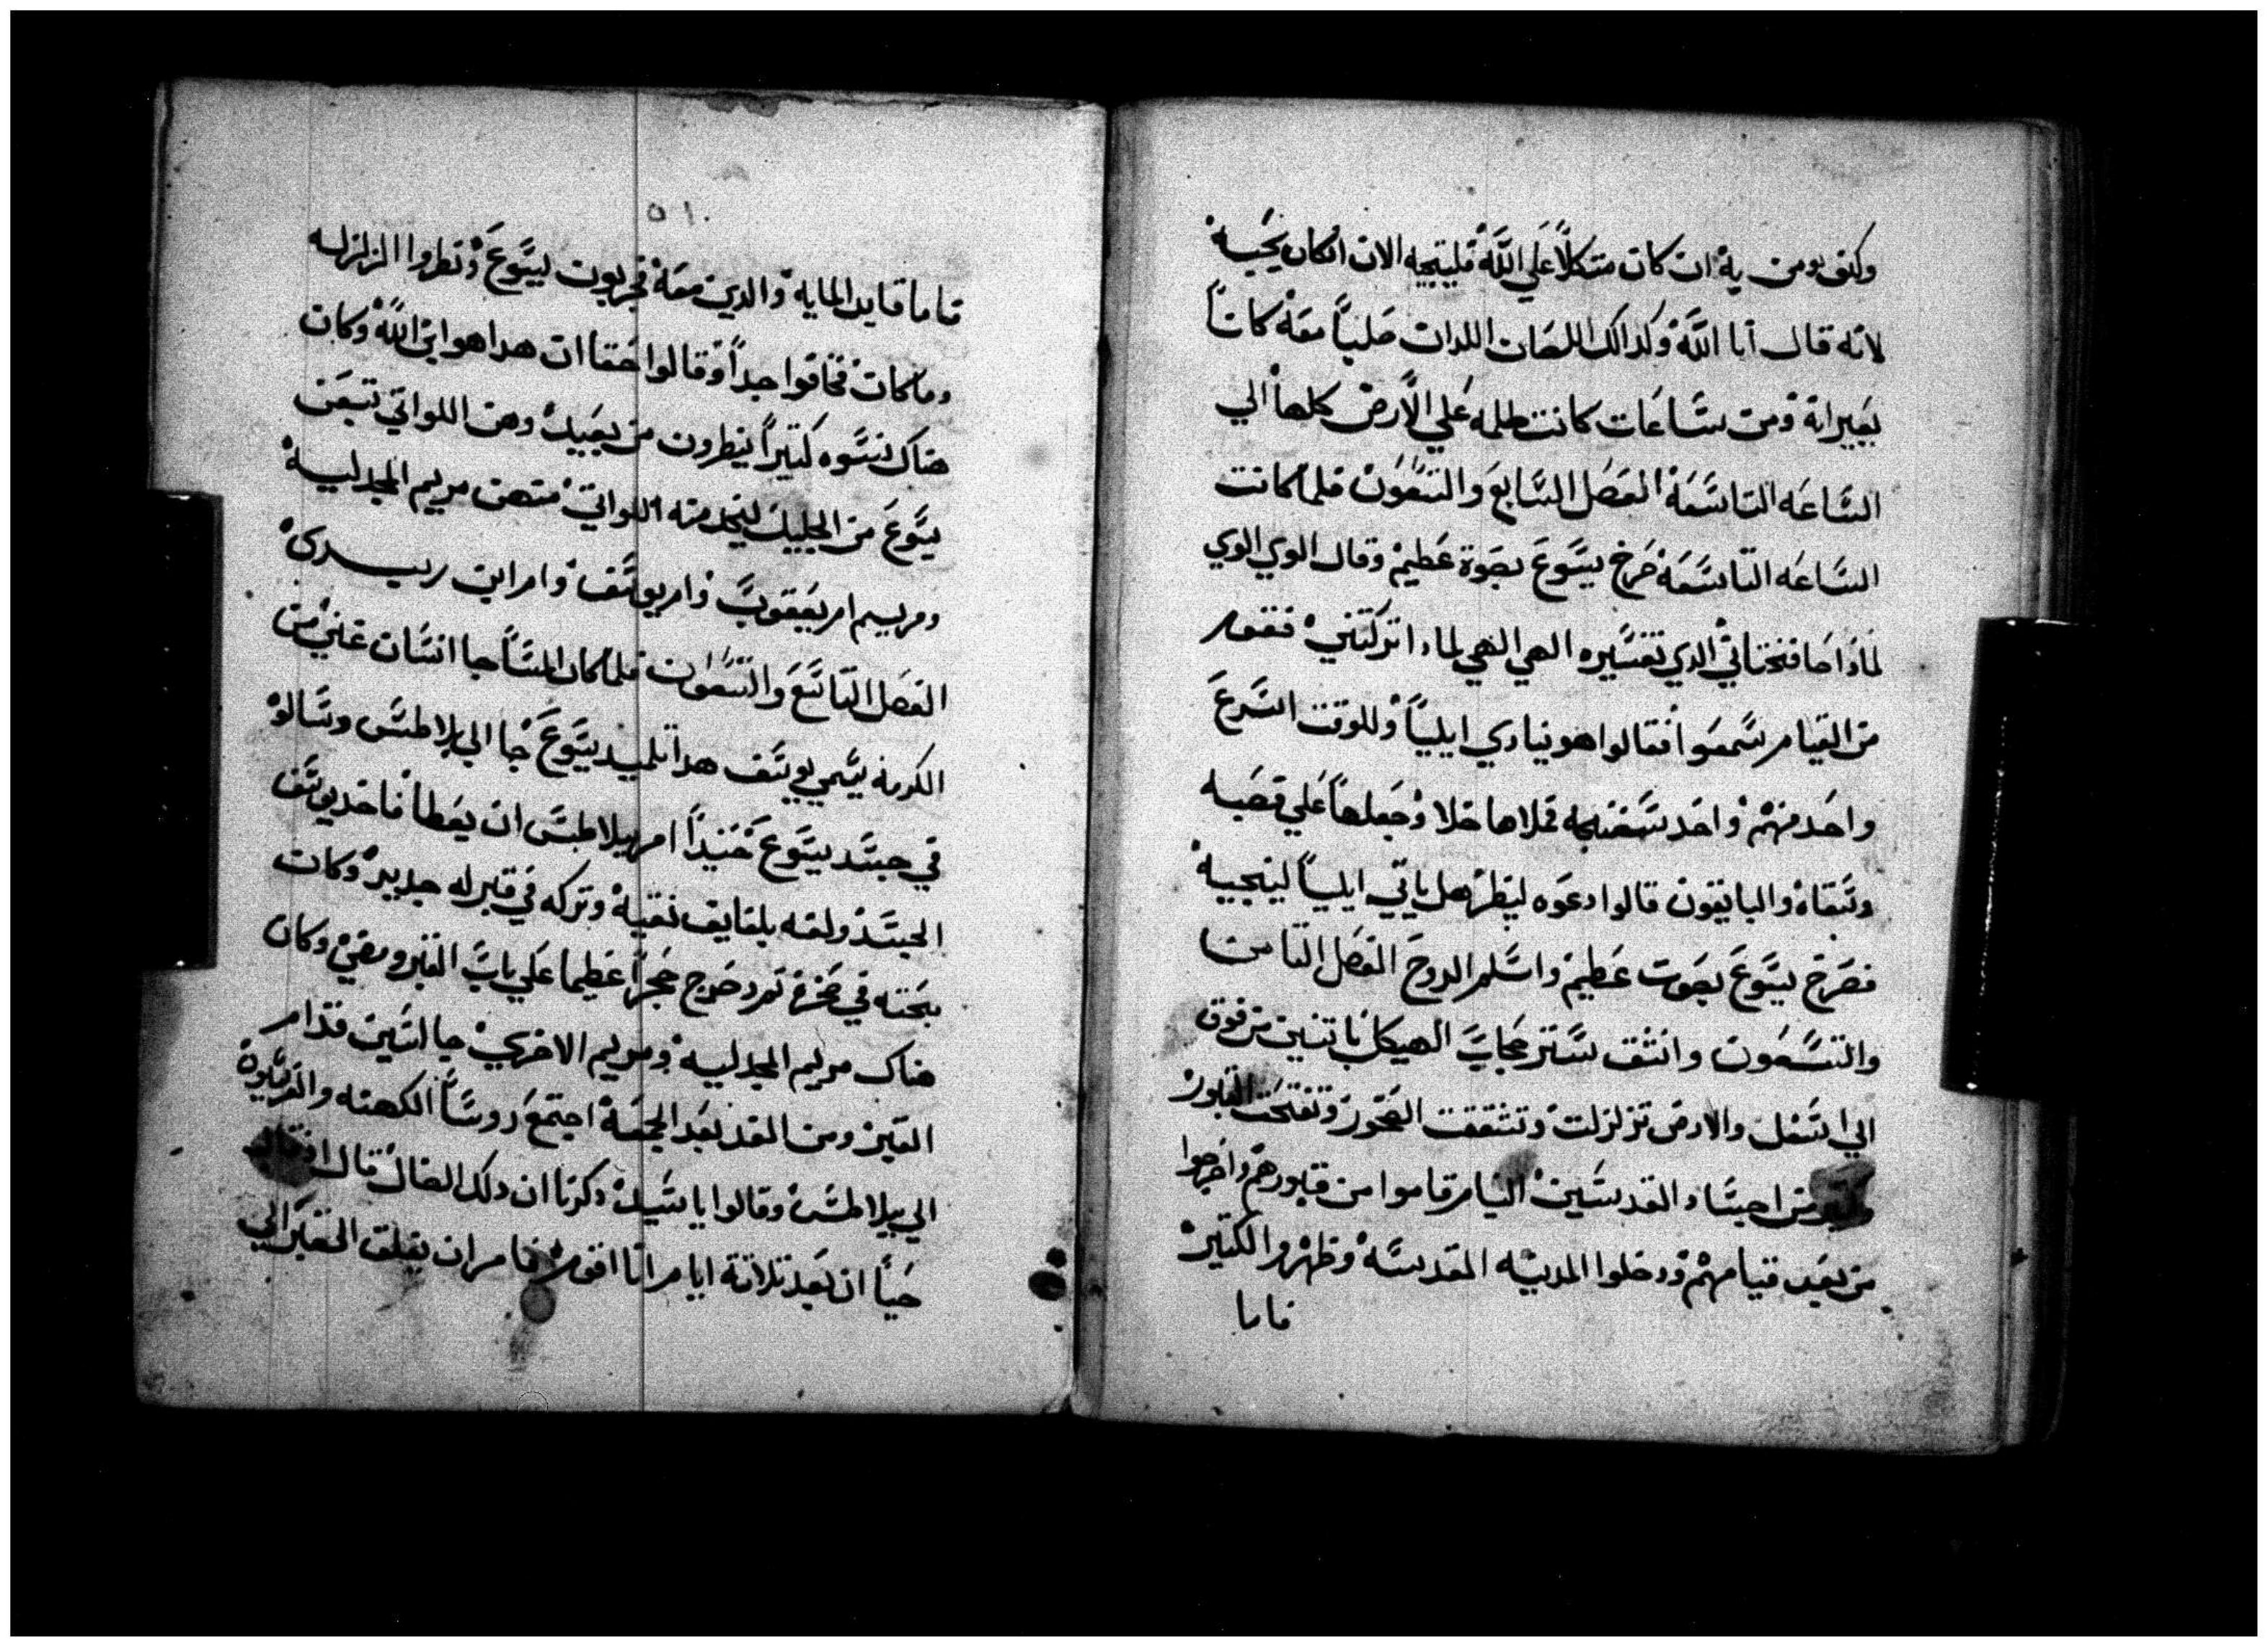 وكنى يومن به ان كان متكلاً على اللّه فليتجيه الان انكان يحبه
لانه قال انا اللّه وكدالك اللصان اللدان صلباً معه كانا
يعيرانه ومن ساعات كانت ظلمه علي الارض كلها الي
الساعه التاسعه الفصل السابع والتسعون فلما كانت
الساعه التاسعه صرخ يسوع بصوة عظيم وقال الوي الوي
لماذاصافختاني الدي تفسيره الهي الهي لمادا تركتني فقوم
من القيام سمعوا فقالوا هو ينادي ايليا وللوقت اسرع
واحد منهم واخد سفنجه فملاها خلا وجعلها علي قصبه
وسقاه والباقيون قالوا دعوه لينظر هل ياتي ايليا لينجيه
فصرخ يسوع بصوت عظيم واسلم الروح الفصل التامن
والتسعون وانشق ستر حجاب الهيكل باتنين من فوق
الي اسفل والارض تزلزلت وتشققت الصخور وتفتحت القبور
وكتير من اجساد القديسين النيام قاموا من قبورهم واخرجوا
من بعد قيامهم ودخلوا المدينه المقدسه وظهروا لكتير
فاما
٥١
فاما قايد المايه والدين معه يحربون يسوع ونظروا الزلزله
وماكان فخافوا جداً وقالوا حقا ان هدا هو ابن اللّه وكان
هناك نسوه كتيراً ينظرون من بعيد وهن اللواتي تبعن
يسوع من الجليل ليخدمنه اللواتي منهن مريم المجدليه
ومريم ام يعقوب وام يوسف وام ابني زبدى
الفصل التاسع والتسعون فلما كان المسا جا انسان غني من
الكرمه يسمي يوسف هدا تلميد يسوع جا الي بلاطس وساله
في جسد يسوع حنيداً امر بيلاطس ان يعطا فاخد يوسف
الجسد ولفه بلفايف نقيه وتركه في قبر له جديد وكان
نحته في صخره تم دحرج حجراً عظيما علي باب القبر ومضي وكان
هناك مريم المجدليه ومريم الاخري جالستين قدام
القبر ومن الغد بعد الجمعة اجتمع روسا الكهنه والفريسيون
الي بيلاطس وقالوا يا سيد دكرنا ان دلك الضال قال
حياً ان بعد تلاتة ايام انا اقوم فامر ان يغلق القبر الي